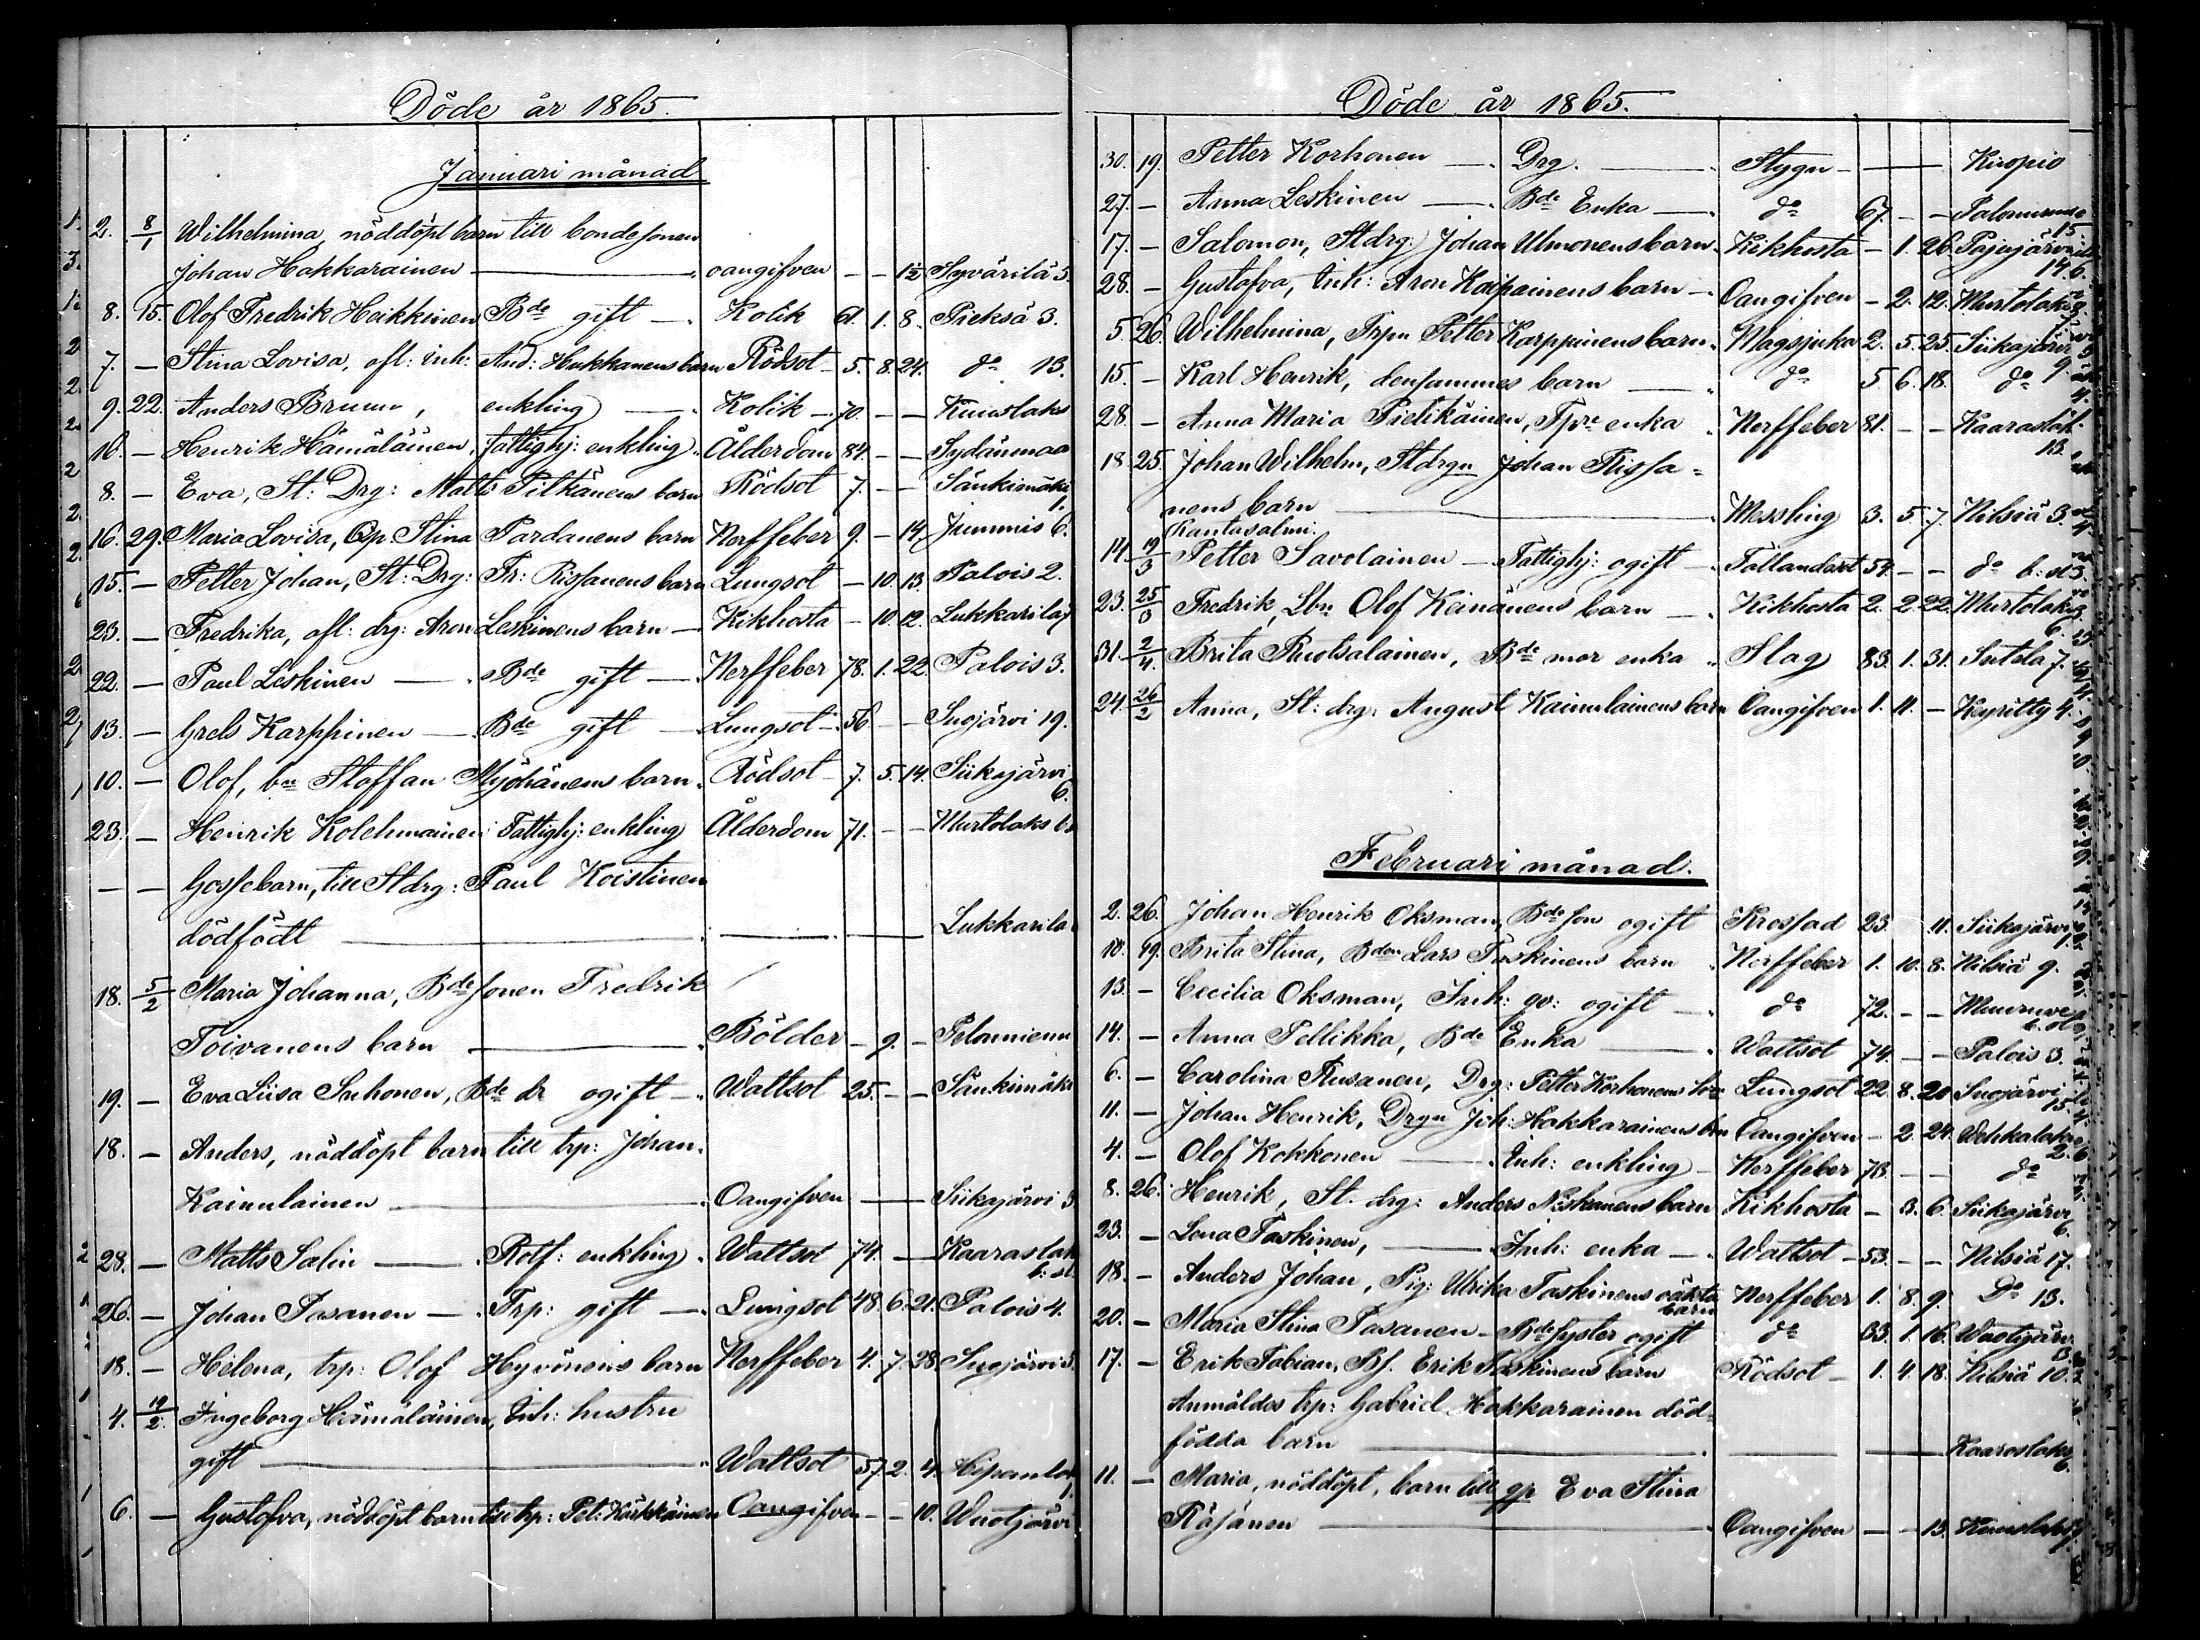 Döde år 1865.
Januari månad
2. 8/1 Wilhelmina, nöddöpt barn till bondesonen
Johan Hakkarainen — oangifven — — 1½ Syvärilä 5.
8. 15. Olof Fredrik Heikkinen Bde gift — Kolik 61. 1. 8. Pieksä 3.
7. — Stina Lovisa, afl: inh: And: Hukkanens barn Rödsot 5. 8. 24. do 13.
9. 22. Anders Bruun, enkling — Kolik — 70. — — Kuuslaks
16. — Henrik Hämäläinen, fattighj: enkling Ålderdom 84. — — Sydänmaa
8. — Eva, St: Drg: Matts Pitkänens barn Rödsot 7. — — Sänkimäki 1.
16. 29. Maria Lovisa, Qp Stina Pardanens barn Nerffeber 9. — 14. Juminis 6.
15. — Petter Johan, St: Drg: Fr: Rissanens barn Lungsot — 10. 13. Palois 2.
23. — Fredrika, afl: drg: Aron Leskinens barn — Kikhosta — 10. 12. Lukkarilax
22. — Paul Leskinen — Bde gift — Nerffeber 78. 1. 22. Palois 3.
13. — Grels Karppinen — Bde gift — Lungsot — 56 — — Suojärvi 19.
10. — Olof, bn Staffan Myöhänens barn. Rödsot — 7. 5. 14. Siikajärvi 6.
23. — Henrik Kolehmainen Fattighj: enkling Ålderdom 71. — — Murtolaks
— — Gossebarn, till Stdrg: Paul Koistinen
dödfödt — — — Lukkarila
18. 5/2 Maria Johanna, Bdesonen Fredrik
Toivanens barn — Bölder — 9. — Pelonniemi
19. — Eva Liisa Suhonen, Bde dr ogift — Wattsot 25. — — Sänkimäki
18. — Anders, nöddöpt barn till trp: Johan
Kainulainen — Oangifven — — Siikajärvi 3
28. — Matts Salin — Rotf: enkling Wattsot 74. — — Kaaraslaks b: st.
26. — Johan Pasanen — Trp: gift — Lungsot 48. 6. 21. Palois 4.
18. — Helena, trp: Olof Hyvönens barn Nerffeber 4. 7. 28. Suojärvi 5.
4. 19/2 Ingeborg Hämäläinen, Inh: hustru
gift — Wattsot 57. 2. 4.
6. — Gustafva, nöddöpt barn till trp: Pet: Kärkkäinen Oangifven — — 10. Wuotjärvi
Döde år 1865.
30. 19. Petter Korhonen — Drg. — Stygn — — Kuopio
27. — Anna Leskinen — Bde Enka — do 67. — — Palonurme 15
17. — Salomon, Stdrg: Johan Ulmonens barn Kikhosta — 1. 26. Pajujärvi
28. — Gustafva, Inh: Aron Kaipainens barn — Oangifven — 2. 12. Murtolaks
5. 26. Wilhelmina, Trpn Petter Karppinens barn Magsjuka 2. 5. 25. Siikajärvi 9.
15. — Karl Henrik, densammes barn — do 5 6. 18. do
28. — Anna Maria Pielikäinen, Tpre enka Nerffeber 81. — — Kaaraslaks 13.
18 25. Johan Wilhelm, Stdrgn Johan Rissa-
nens barn — Messling 3. 5. 7. Nilsiä 3.
Rantasalmi.
14. 19/3 Petter Savolainen — Fattighj: ogift — Fallandsot 54. — — do b: st
23. 25/3 Fredrik, Lbn Olof Keinänens barn — Kikhosta 2. 2. 22. Murtolaks 6.
31. 2/4. Brita Ruotsalainen, Bde mor enka Slag 83. 1. 31. Sutela 7.
24. 26/2 Anna, St: drg: August Kainulainens barn Oangifven 1. 11. — Kyritty 4.
Februari månad.
2. 26. Johan Henrik Oksman, Bde son ogift Krossad 23. 11. Siikajärvi 1.
10. 19. Brita Stina, Bden Lars Taskinens barn Nerffeber 1. 10. 8. Nilsiä 9.
13. — Cecilia Oksman, Inh: qv: ogift — do 72. — — Muuruvesi b. st
14. — Anna Pellikka, Bde Enka — Wattsot 74. — — Palois 3.
6. — Carolina Rusanen, Drg: Petter Korhonens Lungsot 22. 8. 20 Suojärvi 15.
11. — Johan Henrik, Drgn Joh: Hakkarainens bn Oangifven — 2. 24. Wehkalaks 2.
4. — Olof Kokkonen — Inh: enkling — Nerffeber 73. — — do
8. 26. Henrik, St. drg: Anders Niskanens barn Kikhosta — 3. 6. Siikajärvi 6.
23. — Lena Taskinen, — Inh: enka — Wattsot — 53. — — Nilsiä 17.
18. — Anders Johan, Pig: Ulrika Taskinens oäkta barn Nerffeber 1. 8. 9. Do 13.
20. — Maria Stina Pasanen — Bde syster ogift do 33. 1. 16. Wuotjärvi 13.
17. — Erik Fabian, Bs. Erik Taskinens barn Rödsot — 1. 4. 18. Nilsiä 10.
Anmäldes trp: Gabriel Hakkarainen död-
födda barn — — — Kaaraslaks 6.
11. — Maria, nöddöpt, barn till qp Eva Stina
Räsänen — Oangifven — — 13. Kuuslaks